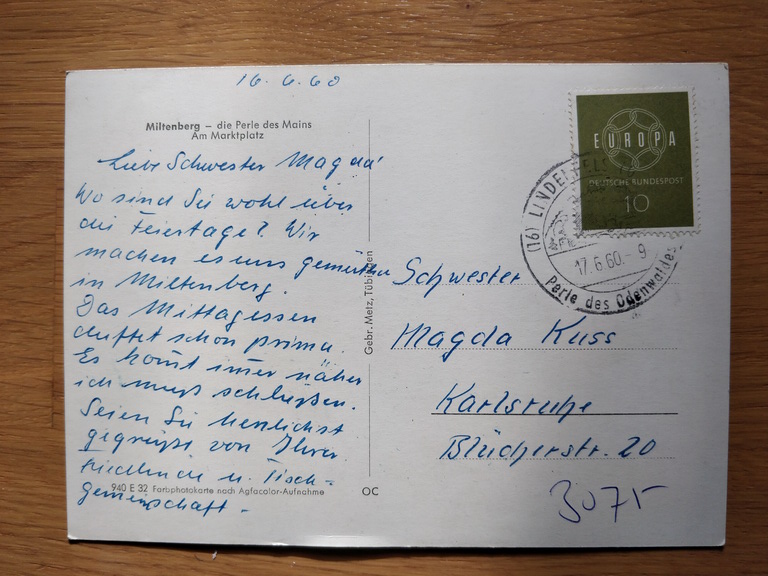 16. 6. 60
Miltenberg – die Perle des Mains
Am Marktplatz
Liebe Schwester Magda!
Wo sind Sie wohl über
die Feiertage? Wir
machen es uns gemütlich
in Miltenberg.
Das Mittagessen
duftet schon prima.
Es komt imer näher
ich muß schließen.
Seien Sie herzlichst
gegrüßt von Ihrer
u. Tisch-
gemeinschaft.
940 E 32 Farbphotokarte nach Agfacolor-Aufnahme
OC
Gebr. Metz, Tübingen
EUROPA
DEUTSCHE BUNDESPOST
10
(16) LINDENFELS
17.6.60.-9
Perle des Odenwaldes
Schwester
Magda Kuss
Karlsruhe
Blücherstr. 20
3075